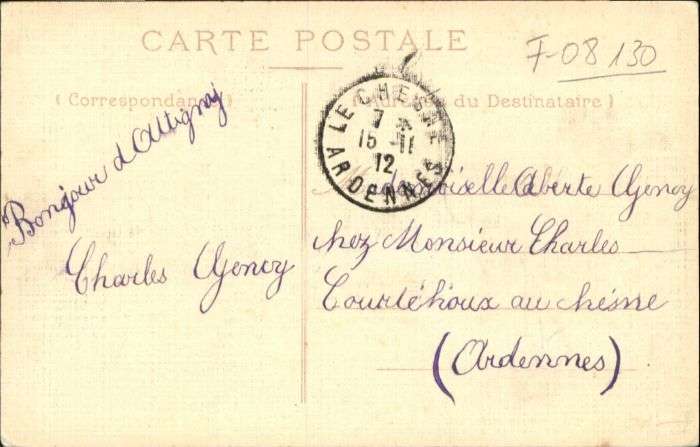 CARTE POSTALE
F-08 130
(Correspondance)
Adresse du Destinataire)
LE CHESNE
7
15 - 11
12
ARDENNES
Bonjour d Attigny
Charles
Mademoiselle
chez Monsieur Charles
Courtéhoux au chésne
(Ardennes)